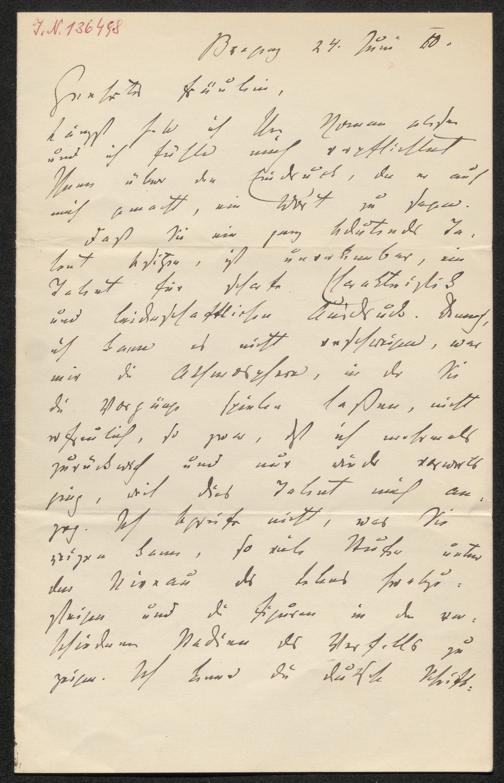 J.N. 136498
24. Juni
Geehrtes Fräulein,
Längst habe ich Ihren Roman gelesen
und ich fühle mich verpflichtet
Ihnen über den Eindruck, den er auf
mich gemacht, ein Wort zu sagen.
Daß Sie ein ganz bedeutendes Ta-
lent besitzen, ist unverkennbar, ein
Talent für scharfe Charakteristik
und leidenschaftlichen Ausdruck. Dennoch,
ich kann es nicht verschweigen, war
mir die Athmosphäre, in der Sie
die Vorgänge spielen laßen, nicht
erfreulich, so zwar, daß ich mehrmals
zurückwich und nur wieder vorwärts
ging, weil das Talent mich an-
zog. Ich begreife nicht, was Sie
reizen kann, so viele Stufen unter
das Niveau des Lebens herabzu-
steigen und die Figuren in den ver-
schiedenen Stadien des Verfalls zu
zeigen. Ich kenne die deutsche Schrift-